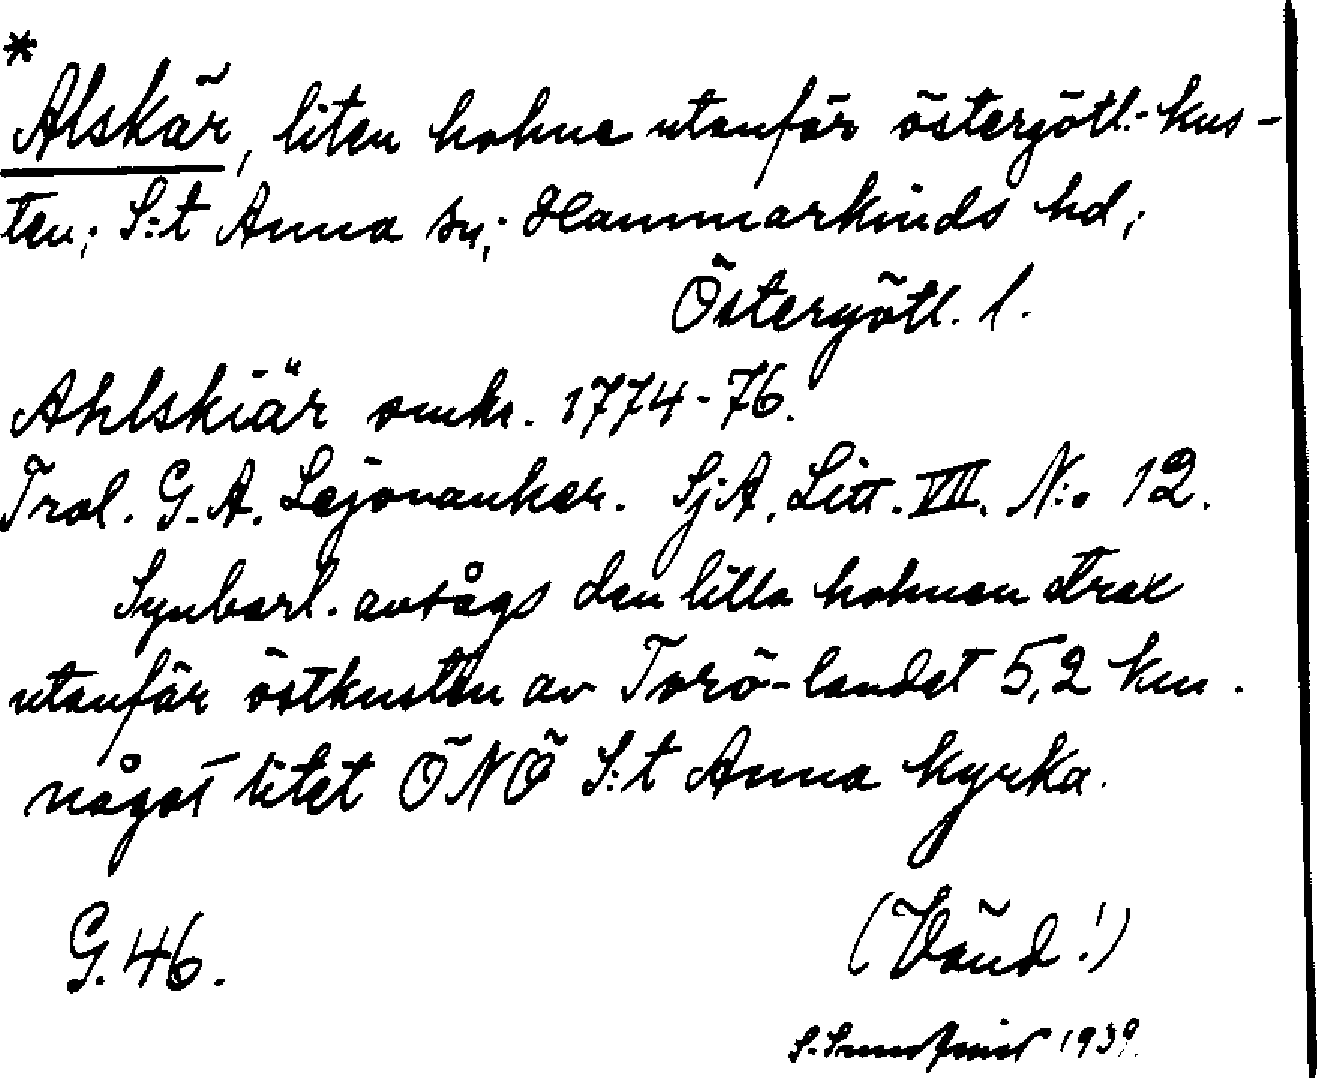 *
Alskär, liten holme utanför östergötl.-kus-
ten; S:t Anna sn; Hammarkinds hd;
Östergötl. l.
Ahlskiär omkr. 1774-76.
Trol. G. A. Lejonanker. SjA. Litt. VII. N:o 12.
Synbarl. avsågs den lilla holmen strax
utanför östkusten av Torö-landet 5,2 km.
något litet ÖNÖ S:t Anna kyrka.
G. 46. (Vänd!)
S. 1939.